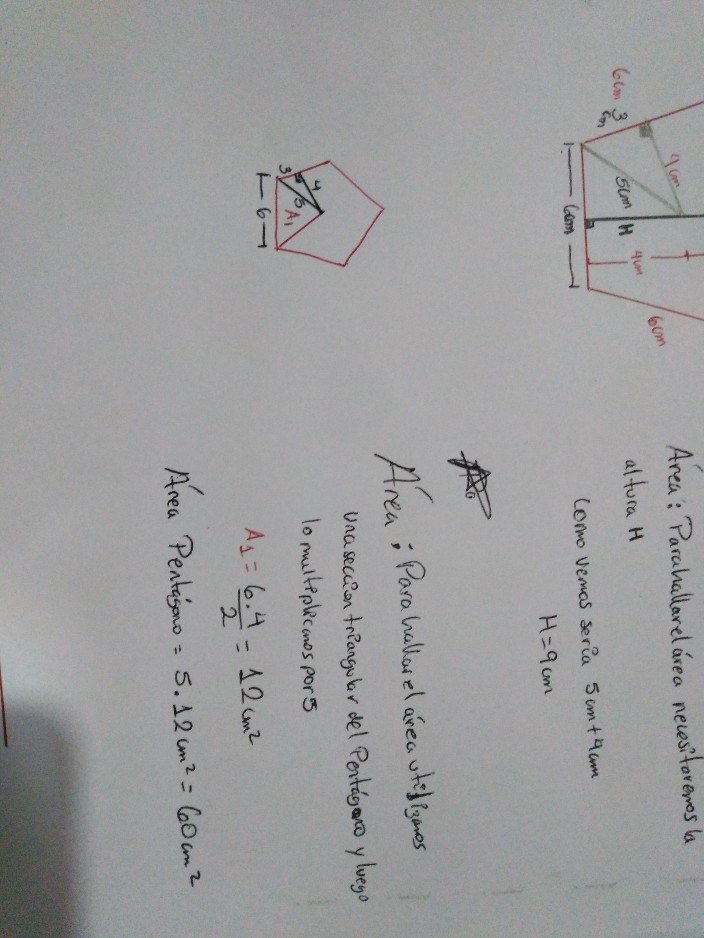 6cm
3
cm
4cm
5cm
H
6cm
4cm
6cm
Área: Para hallar el área necesitaremos la
altura H
como vemos sería 5cm+4cm
H=9cm
Área: Para hallar el área utilizamos
una sección triangular del Pentágono y luego
lo multiplicamos por 5
3
4
5
A1
6
A1 = 6.4/2 = 12cm²
Área Pentágono = 5.12cm² = 60cm²